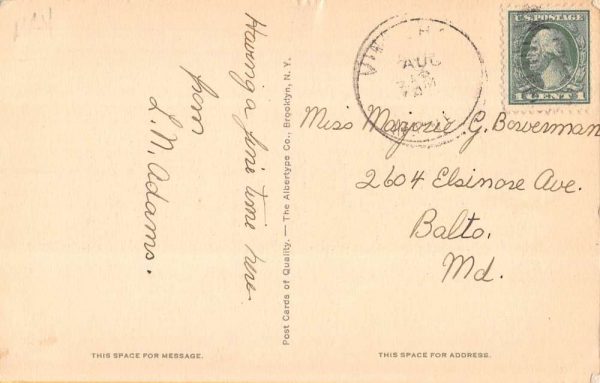 Having a fine time here
from
L. N. Adams.
Post Cards of Quality. — The Albertype Co., Brooklyn, N. Y.
AUG
U.S. POSTAGE
1 CENT 1
Miss Marjorie G. Bowerman
2604 Elsinore Ave.
Balto.
Md.
THIS SPACE FOR MESSAGE.
THIS SPACE FOR ADDRESS.